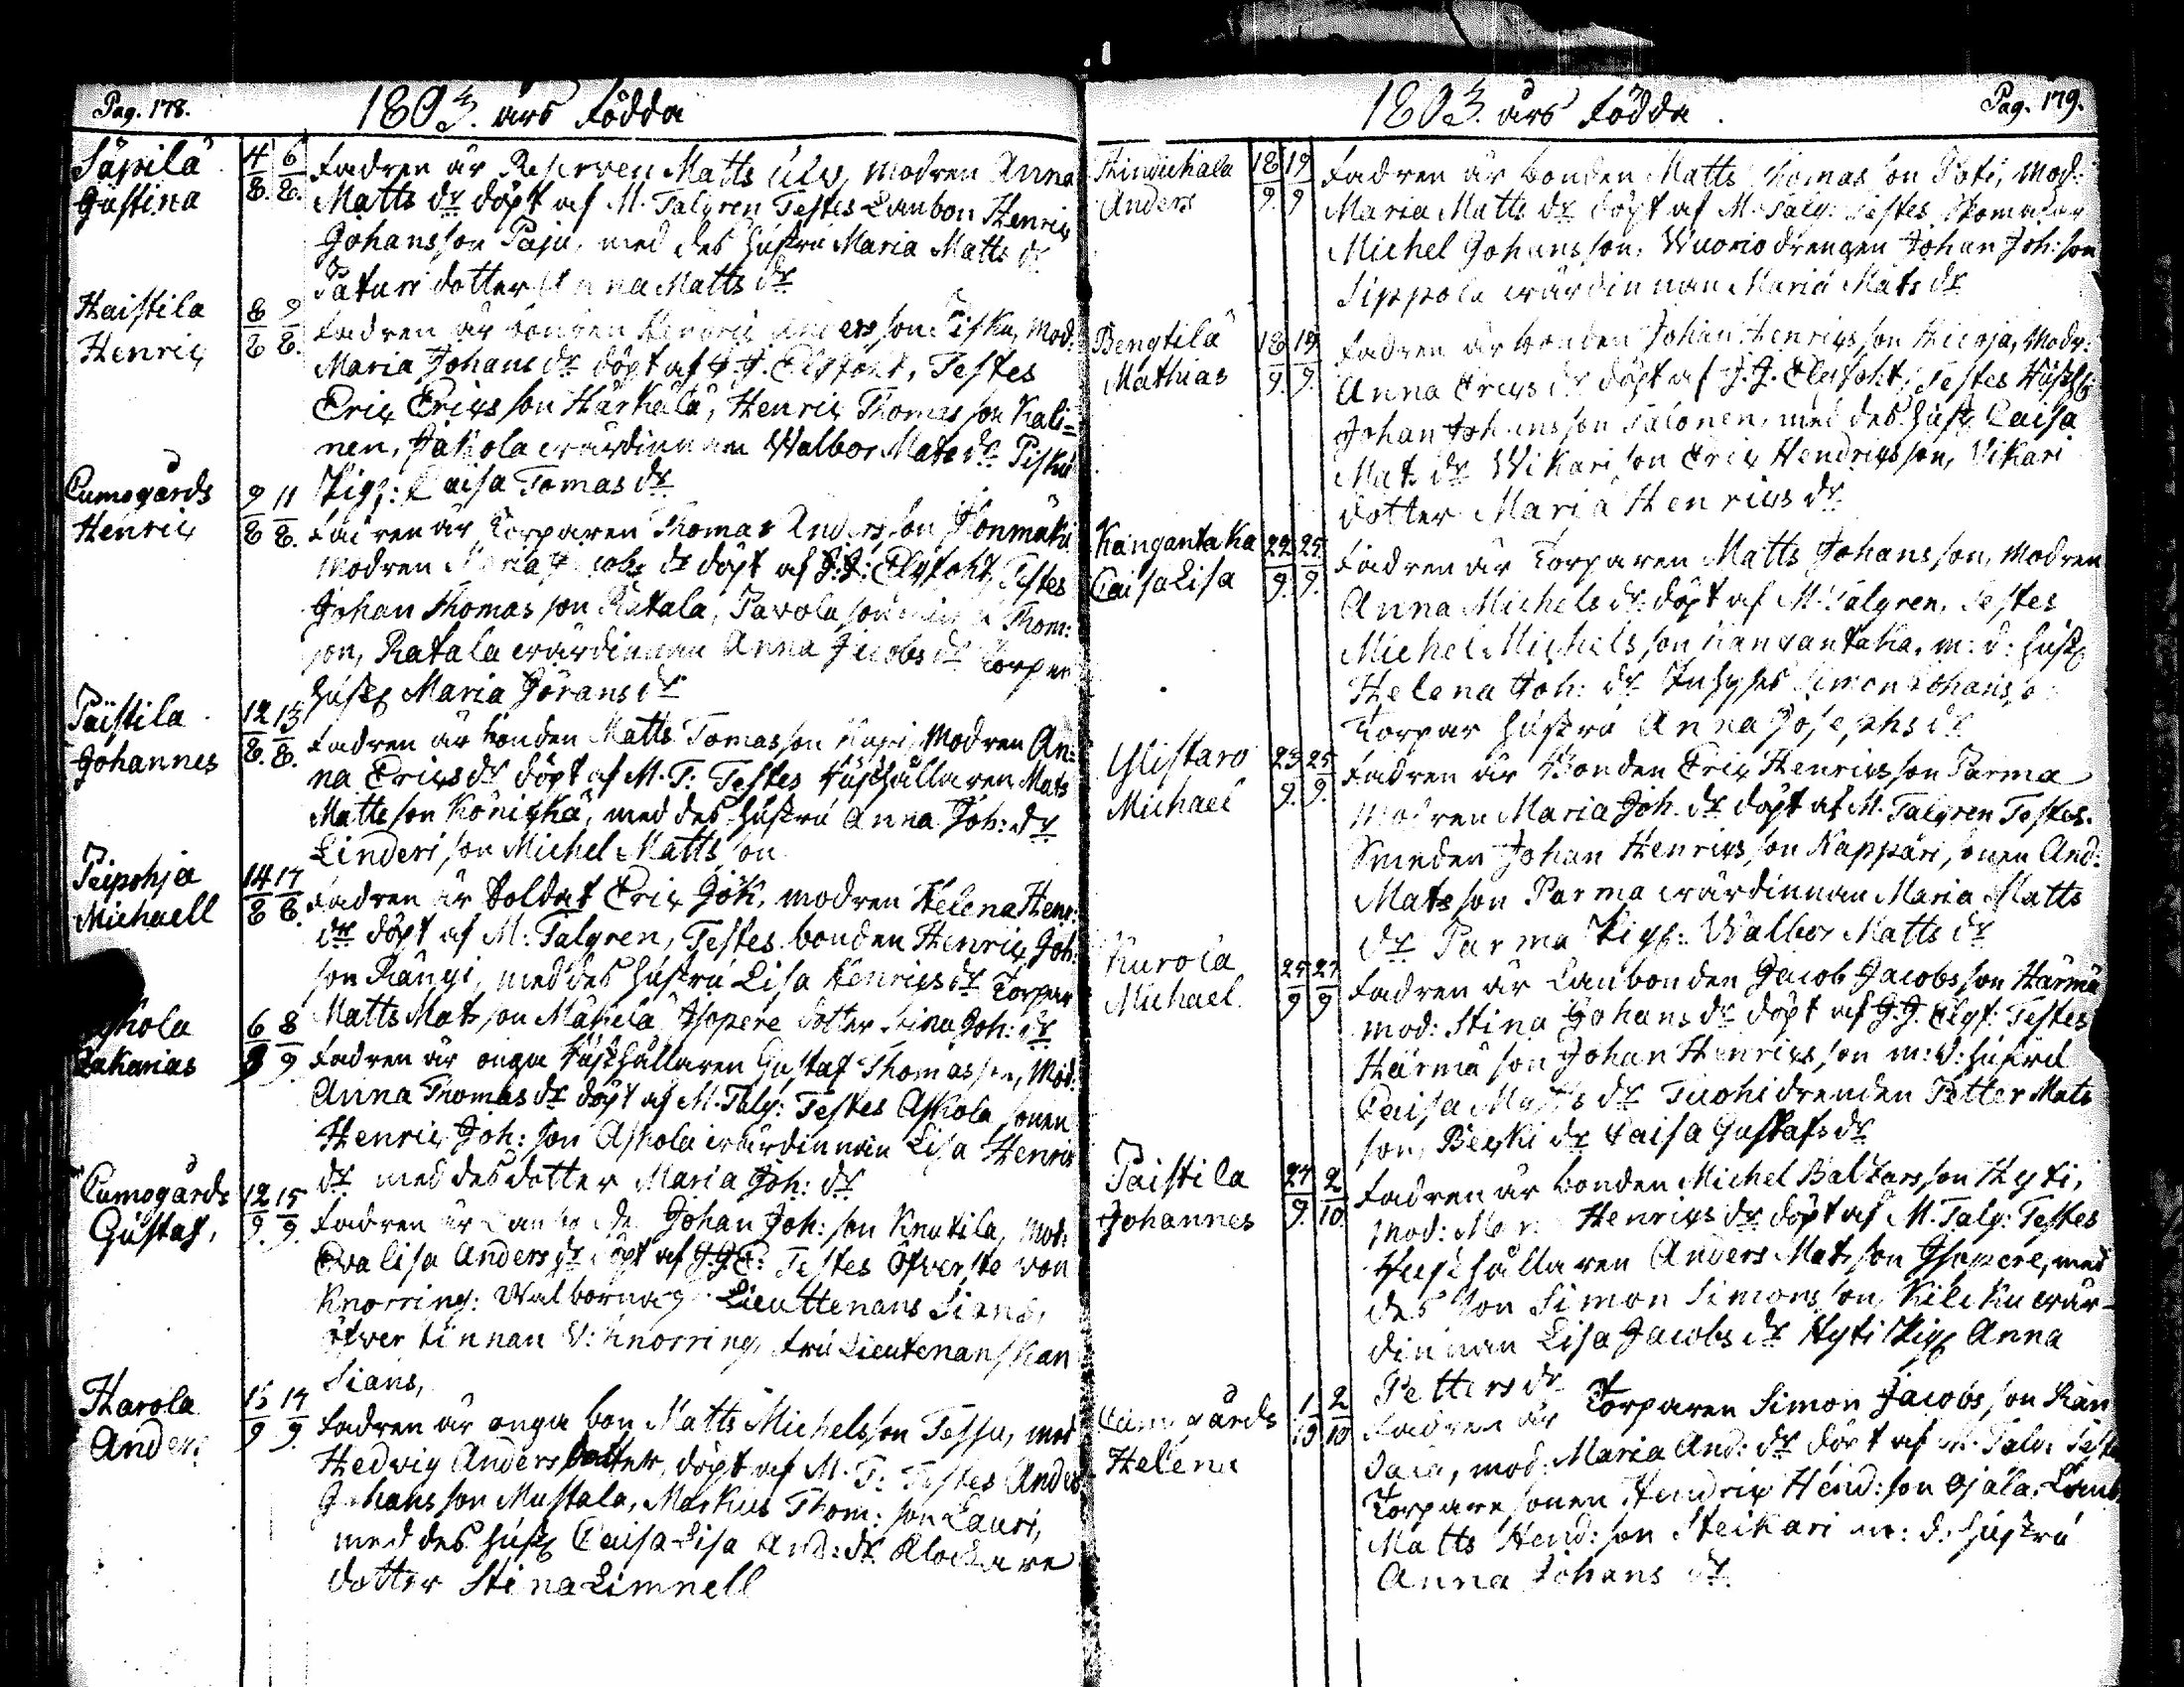 Pag. 178.
1803. års Födda
Säpilä
Gustina
4/8. 6/8.
Fadren är Reserven Matts Ulv, modren Anna
Matts dr döpt af M. Talgren Testes Lanbon Henrix
Johansson Paju, med des hustru Maria Matts dr
Paturi dotter Anna Matts dr
Haistila
Henrix
8/8 9/8.
Fadren är bonden Henrix Andersson Pisku, Mod:
Maria Johans dr döpt af J. J. Elgfoht, Testes
Erix Erixsson Härkälä, Henrix Thomas son Kali=
nen, Jakola wärdinnan Walbor Mats dr Pisku
Pig: Caisa Tomas dr
Cumogårds
Henrix
9/8 11/8.
Fadren är Torparen Thomas Andersson Honmäki
modren Maria Jacobs dr döpt af J: J: Elgfoht, Testes
Johan Thomas son Ratala, Pavola son Thom:
son, Ratala wärdinnan Anna Jacobs dr Torpar
hust Maria Görans dr
Päistilä
Johannes
12/8. 15/8.
Fadren är bonden Matts Tomasson Kapi, Modren An=
na Erixs dr döpt af M. T: Testes Husthållaren Mats
Matts son Könickä, med des hustru Anna Joh: dr
Linderi son Michel Matts son
Peipohja
Michaell
14/8 17/8.
Fadren är Soldat Erix Joh, modren Helena Henr:
dr döpt af M: Talgren, Testes bonden Henrix Joh:
son Rängi, med des hustru Lisa Henrixs dr Torpar
Matts Mats son Mäkelä Isopere dotter Stina Joh: dr
Zakarias
6/9 8/9.
Fadren är onga Husthållaren Gustaf Thomasson, Mod:
Anna Thomas dr döpt af M. Talg: Testes Askola sonen
Henrix Joh: son Askola wärdinnan Lisa Henrix
dr med des dotter Maria Joh: dr
Cumogårds
Gustaf,
12/9. 15/9.
Fadren är Lanbonde Johan Joh: son Knutila, mod:
Eva Lisa Anders dr döpt af J. J. E: Testes Öfverste von
Knorring: Walbornag Lieuttenans Sians,
öfverstinnan V: Knorring, Fru Lieutenanskan
Sians,
Harola
Anders
15/9 17/9.
Fadren är onga bon Matts Michelsson Tessu, mod
Hedvig Anders dotter, döpt af M. T: Testes Anders
Johansson Mustala, Markus Thom: son Lauri,
med des hust Caisa Lisa And: dr Klockare
dotter Stina Limnell
1803. års Födda.
Pag. 179.
Anders
18/9. 19/9
Fadren är bonden Matts Thomas son Poti, Mod:
Maria Matts dr döpt af M. Talg: Testes Skomakar
Michel Johansson, Wuorio drengen Johan Joh: son
Sippola wärdinnan Maria Mats dr
Bengtilä
Mathias
18/9. 19/9.
Fadren är bonden Johan Henrixsson Hieoja, Modr:
Anna Erixs dr döpt af J. J. Elgfoht, Testes Husth
Johan Johansson Talonen, med des hust Caisa
Mats dr Wikari son Erix Hendrixsson, Vikari
dotter Maria Henrixs dr
Kangantaka
Caisa Lisa
22/9. 25/9.
Fadren är Torparen Matts Johansson, modren
Anna Michels dr döpt af M. Talgren, Testes
Michel Michels son Kangantaka, m: d: hust
Helena Joh: dr Simon Johansso
Torpar hustru Anna Josephs dr
Ylistaro
Michael
23/9. 25/9.
Fadren är Bonden Erix Henrixsson Parma
Modren Maria Joh. dr döpt af M. Talgren Testes.
Smeden Johan Henrixsson Kappäri, sonen And:
Mats son Parma wärdinnan Maria Matts
dr Parma Pig: Walbor Matts dr
Kurola
Michael.
25/9 27/9
Fadren är Lanbonden Jacob Jacobsson Härmä
mod: Stina Johans dr döpt af J. J. Elgf: Testes
Härmä son Johan Henrixsson m: d: hustru
Caisa Matts dr Tuohi drenden Petter Mats
son, Beski dr Caisa Gustafs dr
Paistila
Johannes
27/9. 2/10.
Fadren är bonden Michel Baltzarsson Hyti,
mod: Mar. Henrixs dr döpt af M. Talg: Testes
Husthållaren Anders Mats son Isopere, med
des son Simon Simonsson, Kileku wär-
dinnan Lisa Jacobs dr Hyti Pig Anna
Petters dr
Cumogårds
Helena
1/10 2/10
Fadren är Torparen Simon Jacobsson Kan
mod: Maria And: dr döpt af M. Talg. Teste
Torpare sonen Hendrix Hend: son Ojala, Lanb
Matts Hend: son Steikari m: d: hustru
Anna Johans dr.